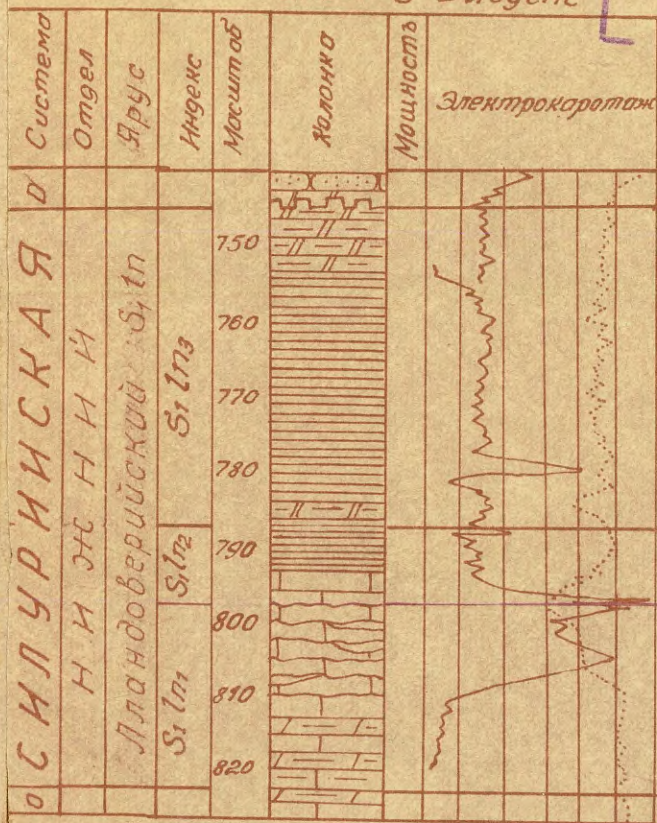 Система
Отдел
Ярус
Индекс
Масштаб
Колонка
Мощность
Электрокаротаж
D
СИЛУРИЙСКАЯ
НИЖНИЙ
Лландоверийский S₁ ln
S₁ ln₃
S₁ ln₂
S₁ ln₁
750
760
770
780
790
800
810
820
O